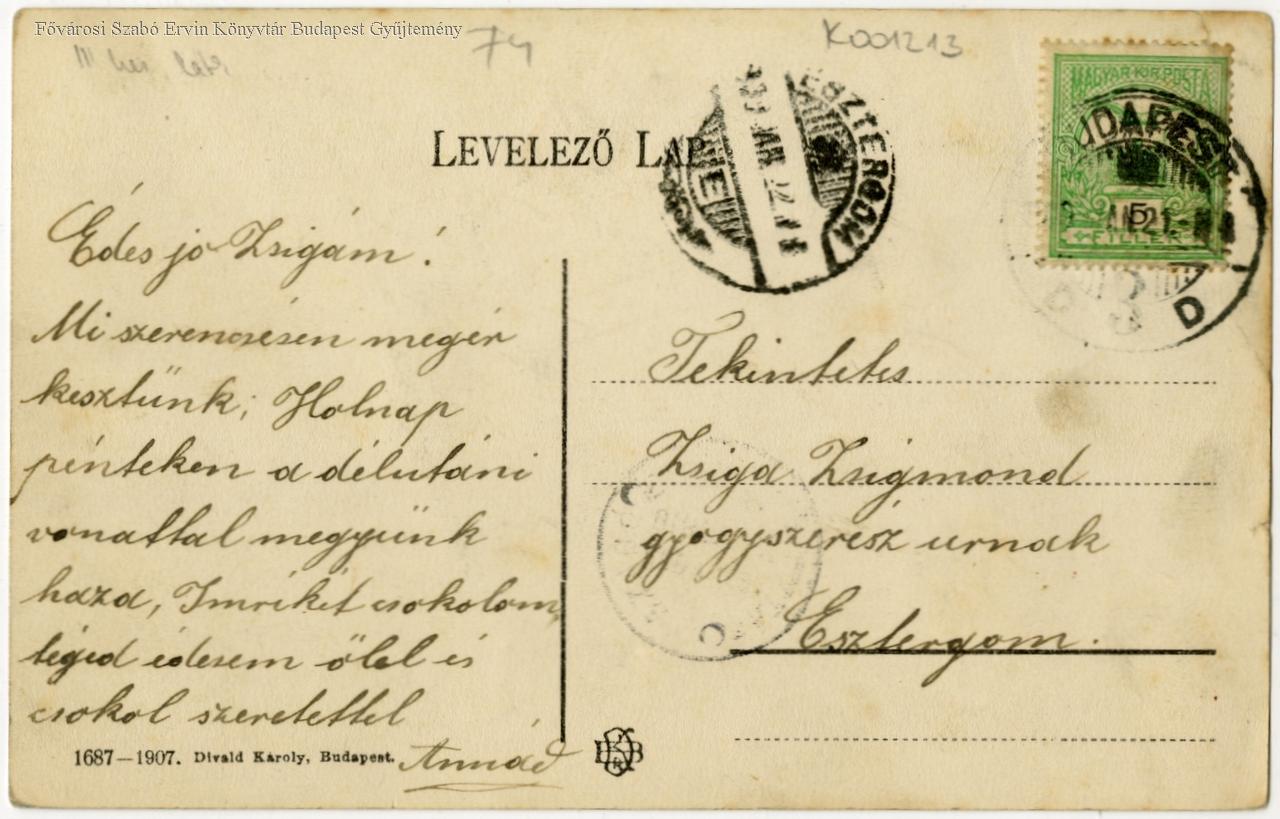 Fővárosi Szabó Ervin Könyvtár Budapest Gyűjtemény
74
K001213
MAGYAR KIR. POSTA
5
FILLÉR
BUDAPEST
D
ESZTERGOM
LEVELEZŐ LAP
Édes jó Zsigám!
Mi szerencsésen megér
keztünk; Holnap
pénteken a délutáni
vonattal megyünk
haza, Imrikét csokolom,
téged édesem ölel és
csokol szeretettel
Annád
Tekintetes
Zsiga Zsigmond
gyógyszerész urnak
Esztergom.
1687—1907. Divald Károly, Budapest.